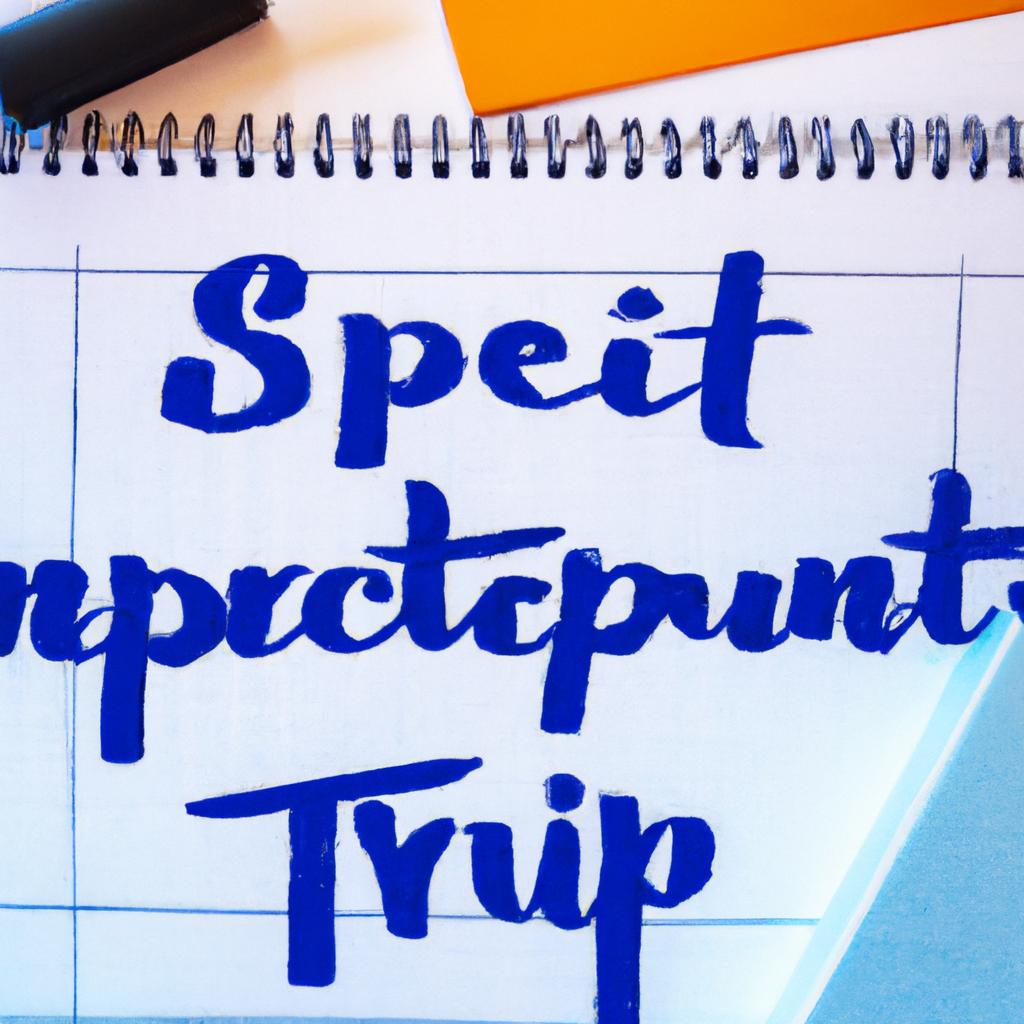 Speit
npretcpunt
Truip